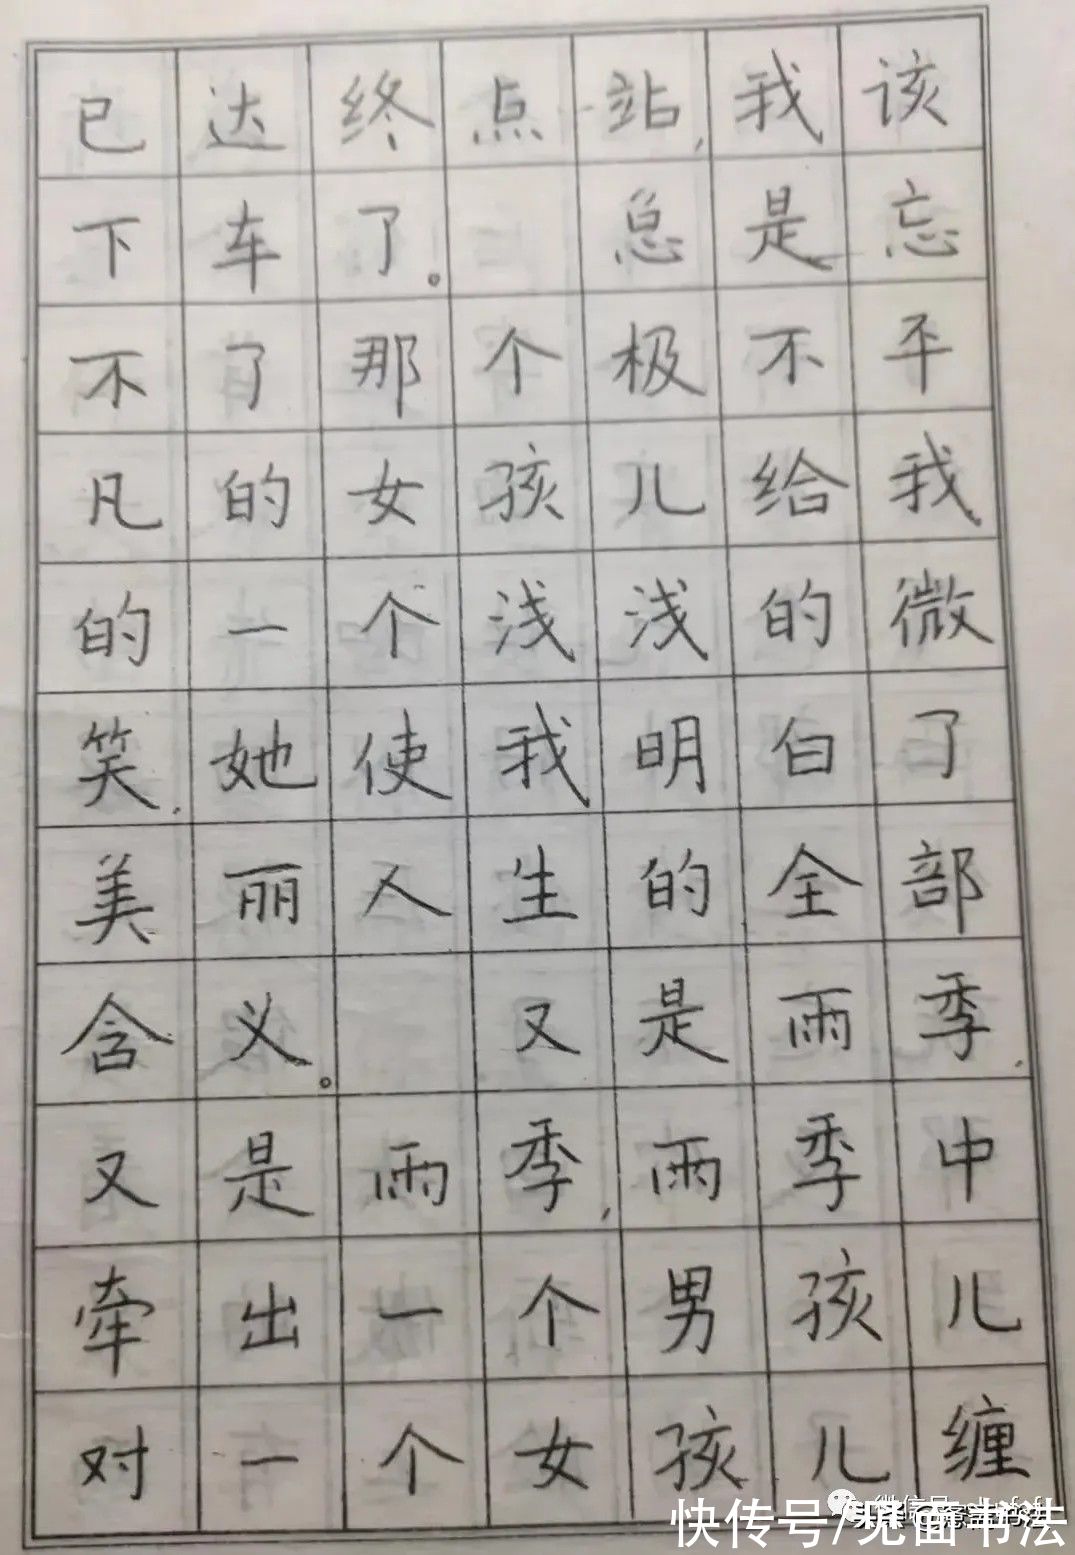 已达终点站，我该
下车了。 总是忘
不了那个极不平
凡的女孩儿给我
的一个浅浅的微
笑，她使我明白了
美丽人生的全部
含义。 又是雨季，
又是雨季，雨季中
牵出一个男孩儿
对一个女孩儿缠
快传号/见面书法